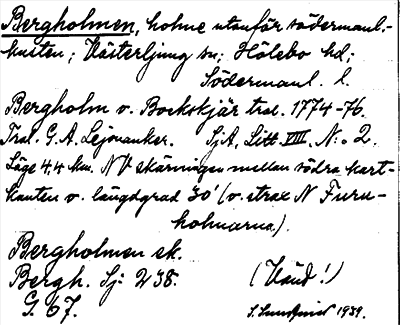 Bergholmen, holme utanför södermanl.-
kusten; Västerljung sn; Hölebo hd;
Södermanl. l.
Bergholm v. Bockskjär tral. 1774-76.
Tral. G. A. Lejonanker. SjA, Litt. VIII, N:o 2.
Läge 4,4 km. NV skärningen mellan södra kart-
kanten v. längdgrad 30' (v. strax N Furu-
holmarna).
Bergholmen ek.
Bergh. Sj: 238.
G. 67.
(Vänd!)
1939.